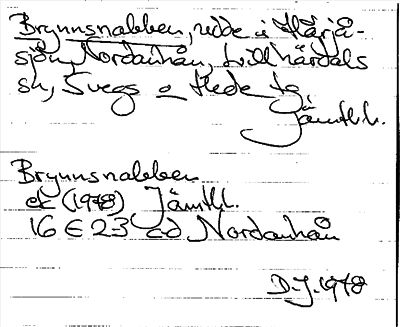 Brynnsnabben, udde i Härjå-
sjön, Nordanhån, Lillhärdals
sn, Svegs o Hede tg
Jämtl.l.
Brynnsnabben
ek (1978) Jämtl.
16 E 23 cd Nordanhån
D.J. 1978